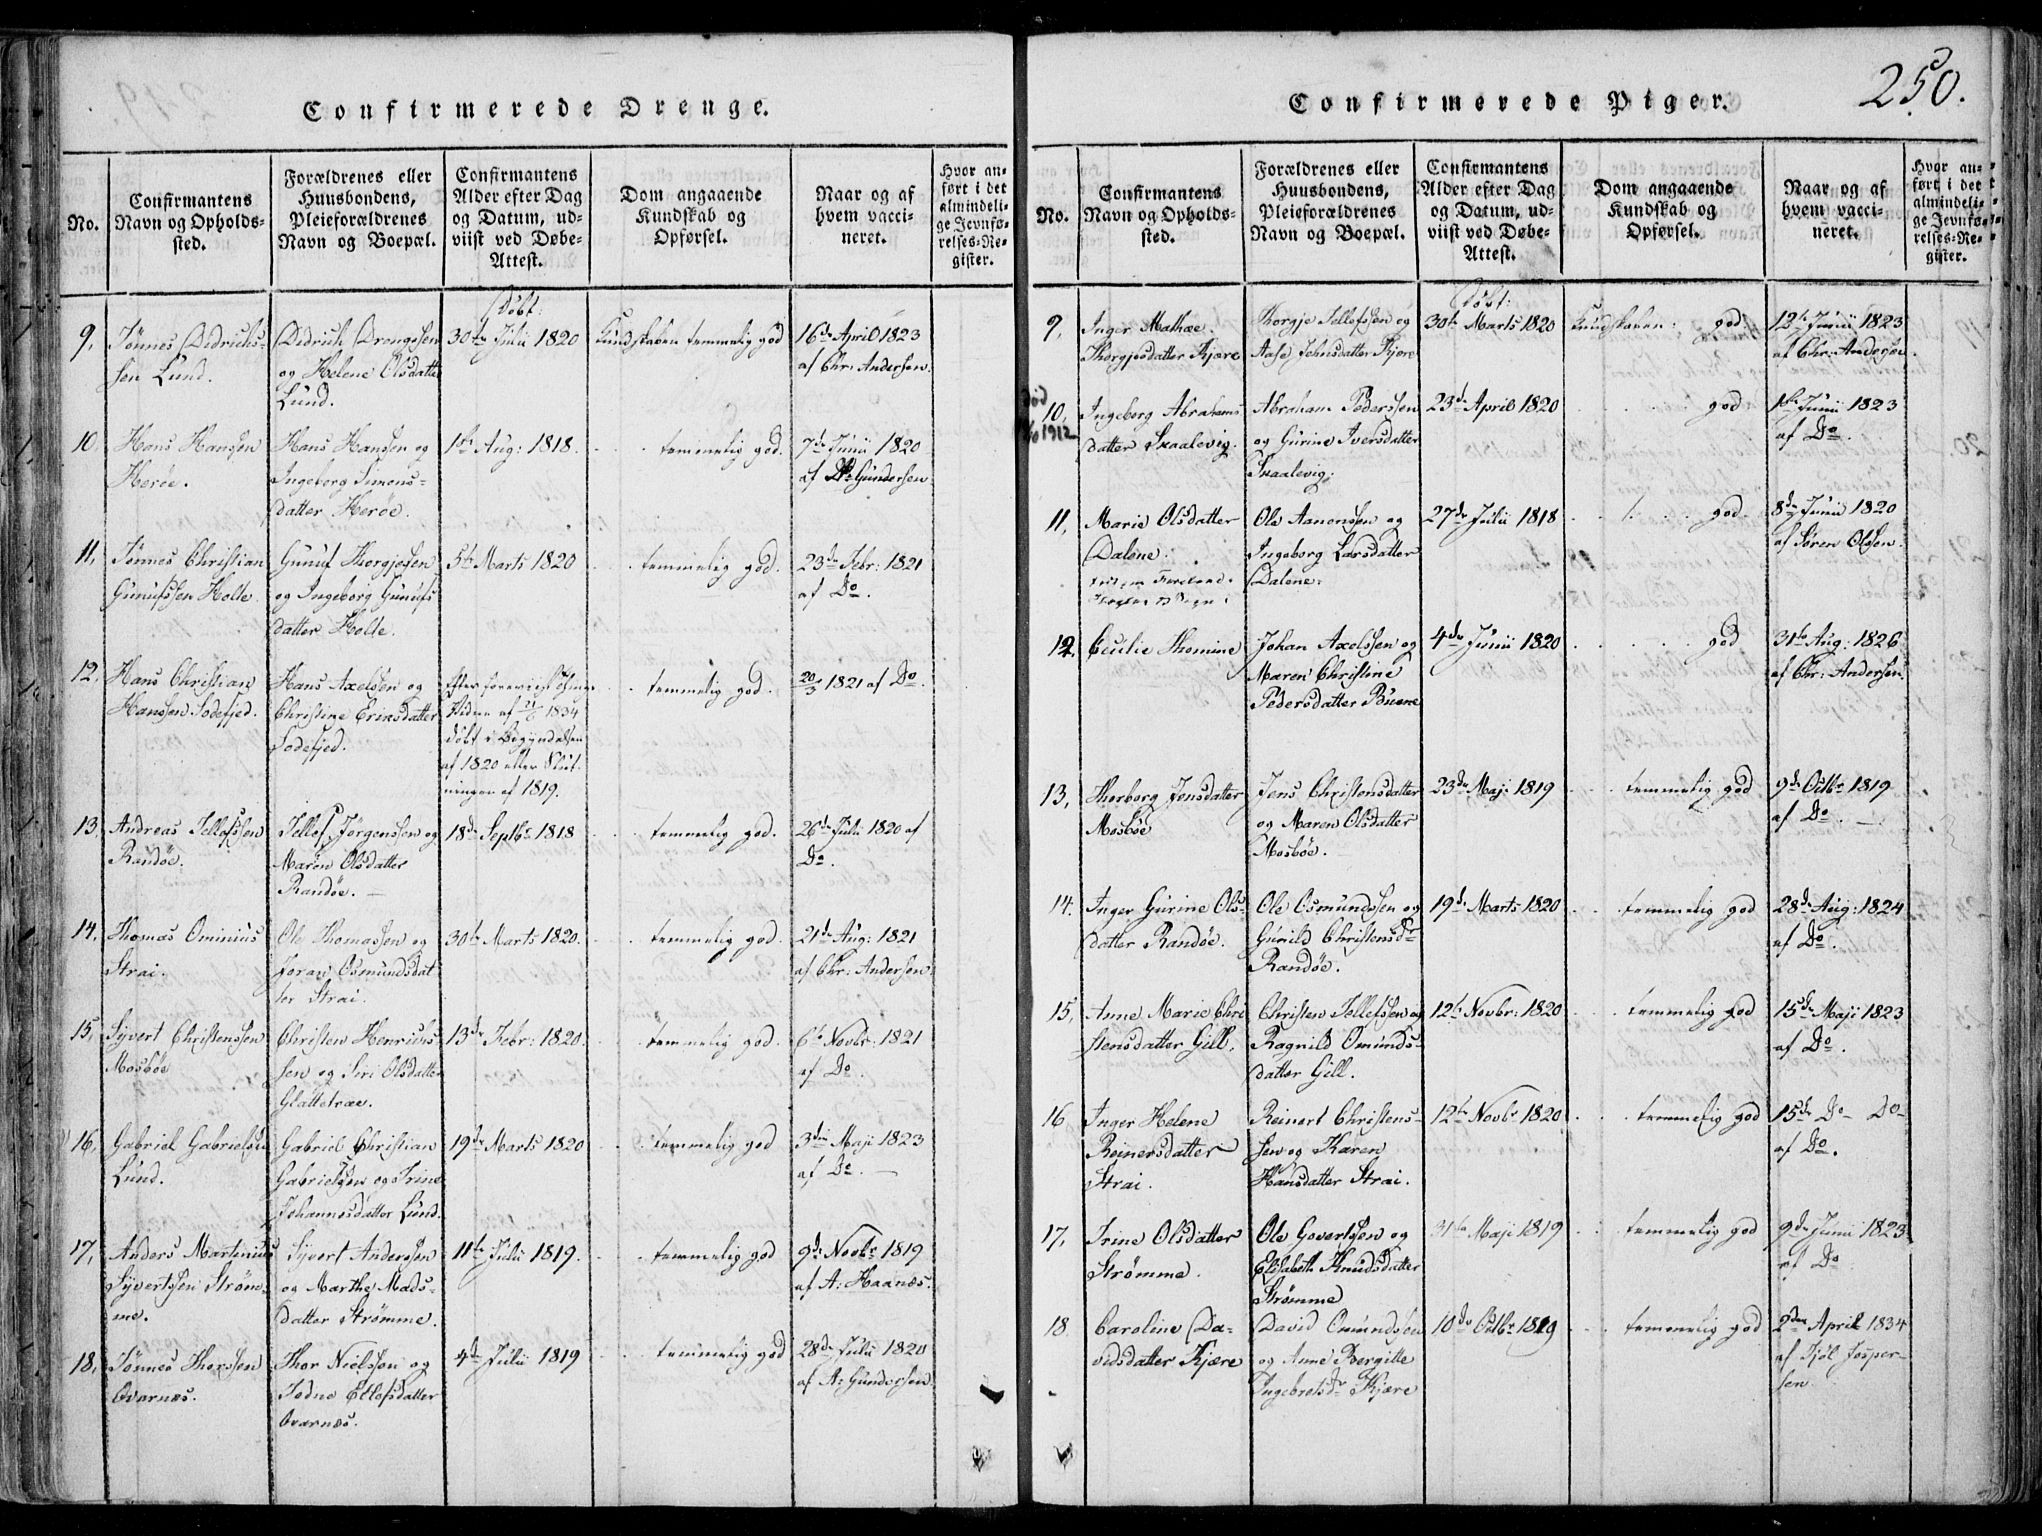 250.
Confirmerede Drenge.
No.
Confirmantens
Navn og Opholds-
sted.
Forældrenes eller
Huusbondens,
Pleieforældrenes
Navn og Boepæl.
Confirmantens
Alder efter Dag
og Datum, ud-
viist ved Døbe-
Attest.
Dom angaaende
Kundskab og
Opførsel.
Naar og af
hvem vacci-
neret.
Hvor an-
ført i det
almindeli-
ge Jevnfø-
relses-Re-
gister.
9.
Tønnes Didrichs-
sen Lund.
Didrich Drengesen
og Helene Olsdatter
Lund.
Døbt:
30te Julii 1820
Kundskaben temmelig god
16de April 1823
af Chr: Andersen.
10.
Hans Hansen
Herøe.
Hans Hansen og
Ingeborg Simons-
datter Herøe.
1te Aug: 1818.
temmelig god.
7de Junii 1820
af A: Gundersen
11.
Tønnes Christian
Gunufssen Holte.
Gunuf Thorgjesen
og Ingeborg Gunufs
datter Holte.
5te Marts 1820
temmelig god.
23de Febr: 1821
af Do.
12.
Hans Christian
Hanssen Sodefjed.
Hans Axelsen og
Christine Ericsdatter
Sodefjed.
Efter foreviist
af 21/6 1834
døbt i Begyndelsen
af 1820 eller Slut-
ningen af 1819.
temmelig god.
20/3 1821 af Do.
13.
Andreas Tellefssen
Randøe.
Tellef Jørgenssen og
Maren Olsdatter
Randøe.
18de Septbr 1818
temmelig god.
26de Julii 1820 af
Do.
14.
Thomas Ominius
Strai.
Ole Thomassen og
Joran Osmundsdat
ter Strai.
30te Marts 1820.
temmelig god.
21de Aug: 1821
af Chr: Andersen.
15.
Syvert Christenssen
Mosbøe
Christen Henrichs-
sen og Siri Olsdatter
Glattetræe.
13de Febr: 1820.
temmelig god.
6te Novbr: 1821
af Do.
16.
Gabriel Gabrielsen
Lund.
Gabriel Christian
Gabrielsen og Trine
Johannesdatter Lund.
19de Marts 1820
temmelig god
3die Maji 1823
af Do.
17.
Anders Martinius
Syvertssen Strøm-
me.
Syvert Anderssen
og Marthe Mads-
datter Strømme.
11te Julii 1819.
temmelig god
9de Novbr 1819
af A: Haanæs.
18.
Tønnes Thorssen
Qvarnæs.
Thor Nielssen og
Todne Ellefsdatter
Qvarnæs.
4de Julii 1819
temmelig god
28de Julii 1820
af A: Gundersen.
Confirmerede Piger.
No.
Confirmantens
Navn og Opholds-
sted.
Forældrenes eller
Huusbondens,
Pleieforældrenes
Navn og Boepæl.
Confirmantens
Alder efter Dag
og Datum, ud-
viist ved Døbe-
Attest.
Dom angaaende
Kundskab og
Opførsel.
Naar og af
hvem vacci-
neret.
Hvor an-
ført i det
almindeli-
ge Jevnfø-
relses-Re-
gister.
9.
Inger Mathæe
Thorgjesdatter Kjære
Thorgje Tellefssen og
Aase Johnsdatter Kjære
Døbt:
30te Marts 1820
Kundskaben: god
12te Junii 1823
af Chr: Andersen.
død
1912
10.
Ingeborg Abrahams
datter Skaalevig.
Abraham Pederssen
og Gurine Iversdatter
Skaalevig.
23de April 1820
god
1te Junii 1823
af Do.
11.
Marie Olsdatter
Dalene.
Ole Aanonsen og
Ingeborg Larsdatter
Dalene.
27de Julii 1818
god
8de Junii 1820
af Søren Olsen.
12.
Cecilie Thomine
Johan Axelssen og
Maren Christine
Pedersdatter
4de Junii 1820
god
31te Aug: 1826
af Chr: Andersen
13.
Thorborg Jensdatter
Mosbøe
Jens Christensdatter
og Maren Olsdatter
Mosbøe.
23de Maj: 1819
temmelig god
9de Octbr 1819
af Do.
14.
Inger Gurine Ols-
datter Randøe.
Ole Osmundssen og
Gunild Christensdr
Randøe.
19de Marts 1820
temmelig god
28de Aug: 1824
af Do.
15.
Anne Marie Chri
stensdatter Gill.
Christen Tellefssen og
Ragnild Omunds-
datter Gill.
12te Novbr: 1820
temmelig god
15de Maji 1823
af Do.
16
Inger Helene
Reinersdatter
Strai.
Reinert Christens-
sen og Karen
Hansdatter Strai.
12te Novbr 1820
temmelig god
15de Do Do
af Do.
17.
Trine Olsdatter
Strømme.
Ole Govertssen og
Elisabeth Knudsdatter
Strømme
31te Maji 1819
temmelig god
9de Junii 1823
af Do
18
Caroline Da-
vidsdatter Kjære
David Omundssen
og Anne Bergitte
Ingebretsdr Kjære
10de Octbr 1819
temmelig god
2den April 1834
af Kjøl Jesper-
sen